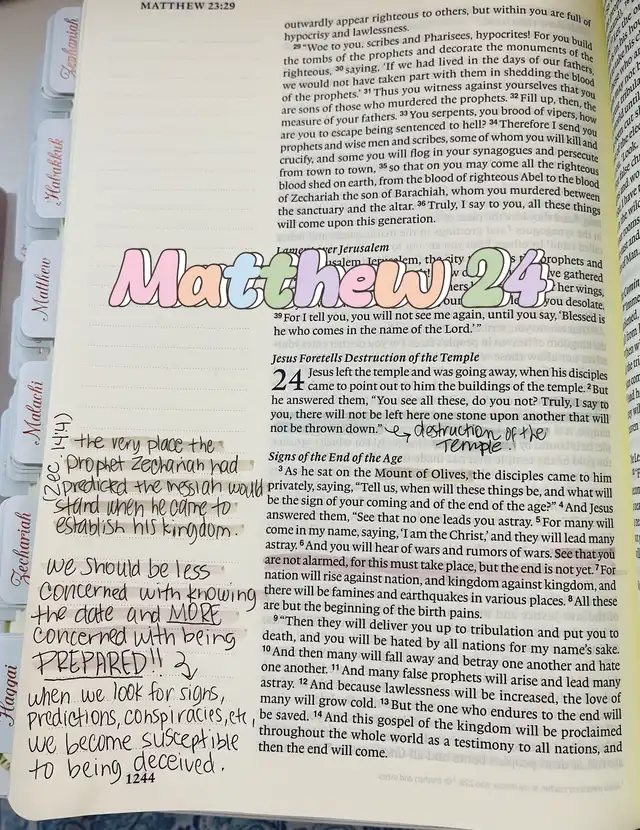 MATTHEW 23:29
Zephaniah
Habakkuk
Matthew
Malachi
Zechariah
Haggai
outwardly appear righteous to others, but within you are full of
hypocrisy and lawlessness.
29 "Woe to you, scribes and Pharisees, hypocrites! For you build
the tombs of the prophets and decorate the monuments of the
righteous, 30 saying, 'If we had lived in the days of our fathers,
we would not have taken part with them in shedding the blood
of the prophets.' 31 Thus you witness against yourselves that you
are sons of those who murdered the prophets. 32 Fill up, then, the
measure of your fathers. 33 You serpents, you brood of vipers, how
are you to escape being sentenced to hell? 34 Therefore I send you
prophets and wise men and scribes, some of whom you will kill and
crucify, and some you will flog in your synagogues and persecute
from town to town, 35 so that on you may come all the righteous
blood shed on earth, from the blood of righteous Abel to the blood
of Zechariah the son of Barachiah, whom you murdered between
the sanctuary and the altar. 36 Truly, I say to you, all these things
will come upon this generation.
Lament over Jerusalem
Jerusalem, the city prophets and
gathered
her wings,
you desolate.
Matthew 24
39 For I tell you, you will not see me again, until you say, 'Blessed is
he who comes in the name of the Lord.'"
Jesus Foretells Destruction of the Temple
24 Jesus left the temple and was going away, when his disciples
came to point out to him the buildings of the temple. 2 But
he answered them, "You see all these, do you not? Truly, I say to
you, there will not be left here one stone upon another that will
not be thrown down." destruction of the
Temple.
Signs of the End of the Age
3 As he sat on the Mount of Olives, the disciples came to him
privately, saying, "Tell us, when will these things be, and what will
be the sign of your coming and of the end of the age?" 4 And Jesus
answered them, "See that no one leads you astray. 5 For many will
come in my name, saying, 'I am the Christ,' and they will lead many
astray. 6 And you will hear of wars and rumors of wars. See that you
are not alarmed, for this must take place, but the end is not yet. 7 For
nation will rise against nation, and kingdom against kingdom, and
there will be famines and earthquakes in various places. 8 All these
are but the beginning of the birth pains.
9 "Then they will deliver you up to tribulation and put you to
death, and you will be hated by all nations for my name's sake.
10 And then many will fall away and betray one another and hate
one another. 11 And many false prophets will arise and lead many
astray. 12 And because lawlessness will be increased, the love of
many will grow cold. 13 But the one who endures to the end will
be saved. 14 And this gospel of the kingdom will be proclaimed
throughout the whole world as a testimony to all nations, and
then the end will come.
(Zec. 14:4)
the very place the
Prophet Zechariah had
predicted the messiah would
stand when he came to
establish his kingdom.
we should be less
concerned with knowing
the date and MORE
concerned with being
PREPARED!!
when we look for signs,
predictions, conspiracies, etc,
we become susceptible
to being deceived.
1244